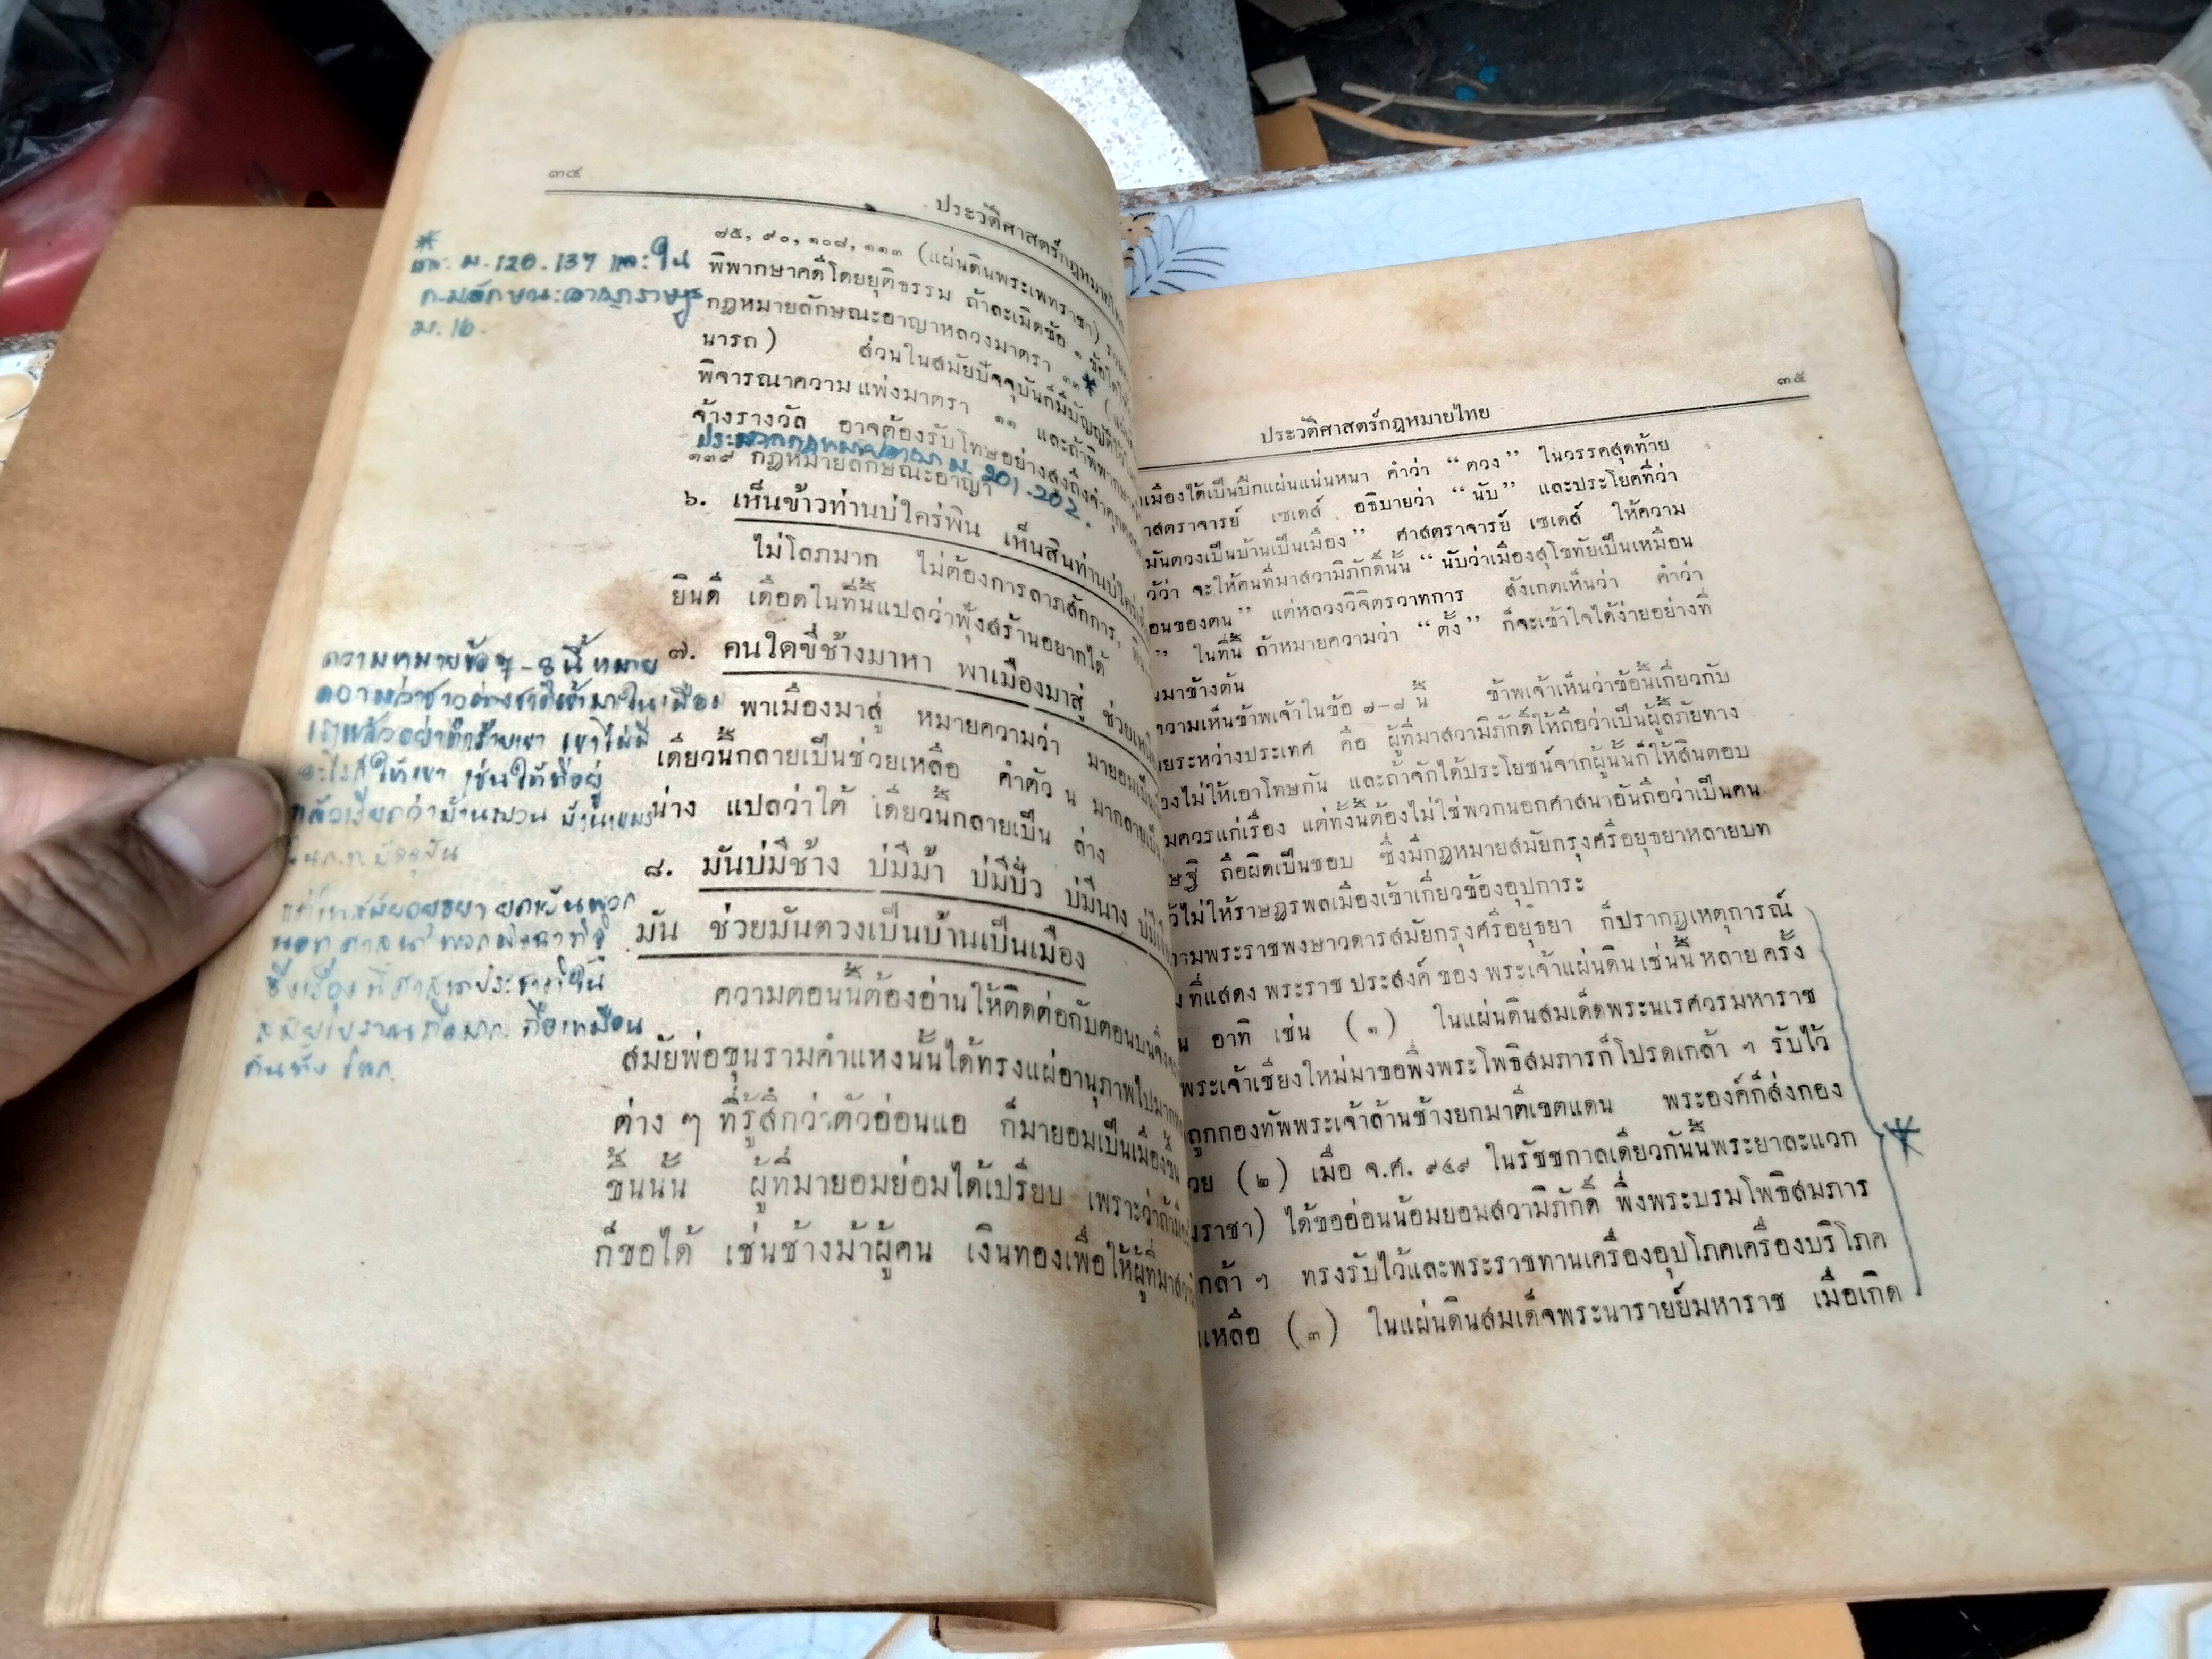 ๓๔
ประวัติศาสตร์กฎหมายไทย
๗๕, ๙๐, ๑๐๘, ๑๑๓ (แผ่นดินพระเพทราชา)
พิพากษาคดีโดยยุติธรรม ถ้าละเมิดข้อ ๑ ข้อใด
กฎหมายลักษณะอาญาหลวงมาตรา ๓๓*
นารถ) ส่วนในสมัยปัจจุบันก็มีบัญญัติ
พิจารณาความแพ่งมาตรา ๑๑ และถ้าพิพากษา
จ้างรางวัล อาจต้องรับโทษอย่างสูงถึงจำคุก
ประมวลกฎหมายอาญา ม. 201-202.
๑๓๙ กฎหมายลักษณะอาญา
๖. เห็นข้าวท่านบ่ใคร่พิน เห็นสินท่านบ่ใคร่
ไม่โลภมาก ไม่ต้องการลาภสักการ,
ยินดี เดือดในที่นี้แปลว่าฟุ้งสร้านอยากได้
๗. คนใดขี่ช้างมาหา พาเมืองมาสู่ ช่วย
พาเมืองมาสู่ หมายความว่า มายอมเป็น
เดี๋ยวนี้กลายเป็นช่วยเหลือ คำตัว น มากลายเป็น
น่าง แปลว่าใต้ เดี๋ยวนี้กลายเป็น ล่าง
๘. มันบ่มีช้าง บ่มีม้า บ่มีปั่ว บ่มีนาง
มัน ช่วยมันตวงเป็นบ้านเป็นเมือง
ความตอนนี้ต้องอ่านให้ติดต่อกับตอนบน
สมัยพ่อขุนรามคำแหงนั้นได้ทรงแผ่อานุภาพไป
ต่าง ๆ ที่รู้สึกว่าตัวอ่อนแอ ก็มายอมเป็นเมืองขึ้น
ขึ้นนั้น ผู้ที่มายอมย่อมได้เปรียบ เพราะว่า
ก็ขอได้ เช่นช้างม้าผู้คน เงินทองเพื่อให้ผู้ที่มา
*
ม. 120. 137 และใน
ม. 16.
ความหมายข้อ ๗-8 นี้ หมาย
ความว่าชาวต่างชาติเข้ามาในเมือง
เราแล้วอย่าทำร้ายเขา เขาไม่มี
อะไรก็ให้เขา เช่นให้ที่อยู่
แล้วเรียกว่าบ้านญวน บ้านเขมร
กันทั้งโลก
๓๕
ประวัติศาสตร์กฎหมายไทย
เมืองได้เป็นปึกแผ่นแน่นหนา คำว่า “ตวง” ในวรรคสุดท้าย
าสตราจารย์ เซเดส์ อธิบายว่า “นับ” และประโยคที่ว่า
มันตวงเป็นบ้านเป็นเมือง” ศาสตราจารย์ เซเดส์ ให้ความ
ว้ว่า จะให้คนที่มาสวามิภักดิ์นั้น “นับว่าเมืองสุโขทัยเป็นเหมือน
อนของตน” แต่หลวงวิจิตรวาทการ สังเกตเห็นว่า คำว่า
” ในที่นี้ ถ้าหมายความว่า “ตั้ง” ก็จะเข้าใจได้ง่ายอย่างที่
มาข้างต้น
ความเห็นข้าพเจ้าในข้อ ๗-๘ นี้ ข้าพเจ้าเห็นว่าข้อนี้เกี่ยวกับ
ยระหว่างประเทศ คือ ผู้ที่มาสวามิภักดิ์ให้ถือว่าเป็นผู้ลี้ภัยทาง
องไม่ให้เอาโทษกัน และถ้าจักได้ประโยชน์จากผู้นั้นก็ให้สินตอบ
มควรแก่เรื่อง แต่ทั้งนี้ต้องไม่ใช่พวกนอกศาสนาอันถือว่าเป็นคน
ษฐิ ถือผิดเป็นชอบ ซึ่งมีกฎหมายสมัยกรุงศรีอยุธยาหลายบท
ว้ไม่ให้ราษฎรพลเมืองเข้าเกี่ยวข้องอุปการะ
ามพระราชพงษาวดารสมัยกรุงศรีอยุธยา ก็ปรากฏเหตุการณ์
ที่แสดงพระราชประสงค์ของพระเจ้าแผ่นดินเช่นนี้หลายครั้ง
น อาทิ เช่น (๑) ในแผ่นดินสมเด็จพระนเรศวรมหาราช
พระเจ้าเชียงใหม่มาขอพึ่งพระโพธิสมภารก็โปรดเกล้า ๆ รับไว้
ถูกกองทัพพระเจ้าล้านช้างยกมาตีเขตแดน พระองค์ก็ส่งกอง
วย (๒) เมื่อ จ.ศ. ๙๔๙ ในรัชชกาลเดียวกันนี้พระยาละแวก
ราชา) ได้ขออ่อนน้อมยอมสวามิภักดิ์ พึ่งพระบรมโพธิสมภาร
กล้า ๆ ทรงรับไว้และพระราชทานเครื่องอุปโภคเครื่องบริโภค
เหลือ (๓) ในแผ่นดินสมเด็จพระนารายย์มหาราช เมื่อเกิด
*